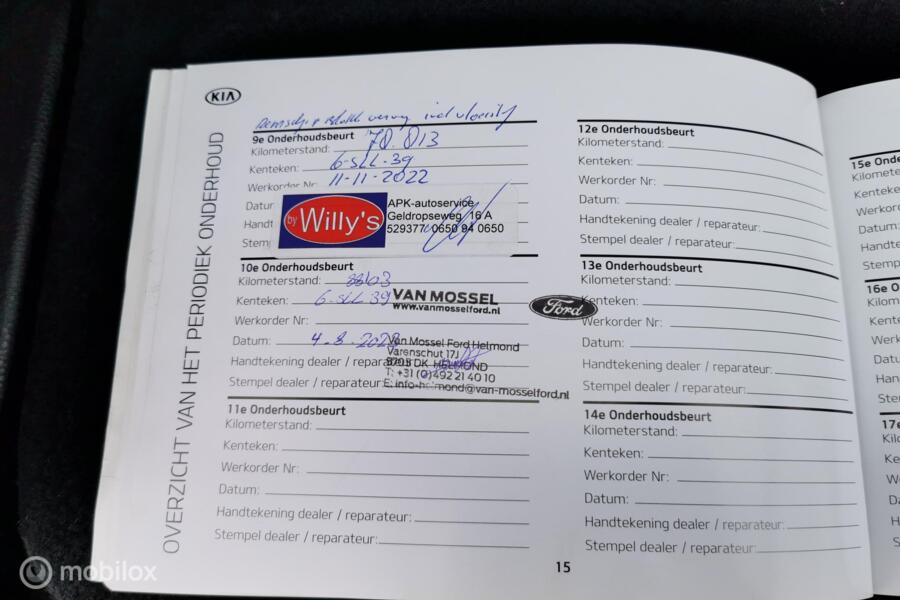 KIA
OVERZICHT VAN HET PERIODIEK ONDERHOUD
9e Onderhoudsbeurt
Kilometerstand: 70.013
Kenteken: 6-SLL-39
Werkorder Nr: 11-11-2022
Datu
Handt
Stem
by Willy's
APK-autoservice
Geldropseweg 16 A
529377 0650 94 0650
10e Onderhoudsbeurt
Kilometerstand: 88103
Kenteken: 6-SLL 39
Werkorder Nr:
Datum: 4-8-202
Handtekening dealer / repara
Stempel dealer / reparateur:
VAN MOSSEL
www.vanmosselford.nl
Ford
Van Mossel Ford Helmond
Varenschut 17J
5705 DK HELMOND
T: +31 (0)492 21 40 10
mond@van-mosselford.nl
11e Onderhoudsbeurt
Kilometerstand:
Kenteken:
Werkorder Nr:
Datum:
Handtekening dealer / reparateur:
Stempel dealer / reparateur:
12e Onderhoudsbeurt
Kilometerstand:
Kenteken:
Werkorder Nr:
Datum:
Handtekening dealer / reparateur:
Stempel dealer / reparateur:
13e Onderhoudsbeurt
Kilometerstand:
Kenteken:
Werkorder Nr:
Datum:
Handtekening dealer / reparateur:
Stempel dealer / reparateur:
14e Onderhoudsbeurt
Kilometerstand:
Kenteken:
Werkorder Nr:
Datum:
Handtekening dealer / reparateur:
Stempel dealer / reparateur:
15
15e Onde
Kilomete
Kenteke
Werkor
Datum:
Handte
Stemp
16e O
Kilom
Kente
Werk
Datu
Han
Ste
17e
Kil
Ke
W
D
H
S
mobilox